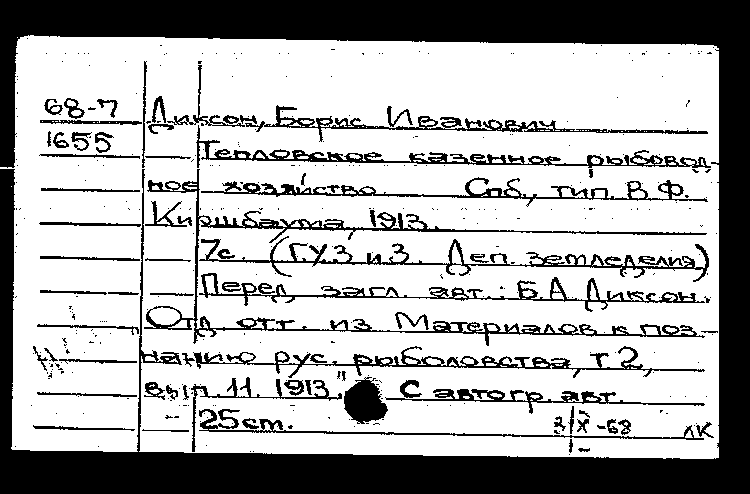 68-7 Диксон, Борис Иванович
1655 Тепловское казенное рыбовод-
ное хозяйство. Спб., тип. В.Ф.
Киршбаума, 1913.
7с. (Г.У.З и.З. Деп. земледелия)
Перед загл. авт.: Б.А Диксон.
Отд. отт. из "Материалов к поз-
нанию рус. рыболовства, т. 2,
вып. 11. 1913." С автогр. авт.
25cm. 3/X-68 ЛК